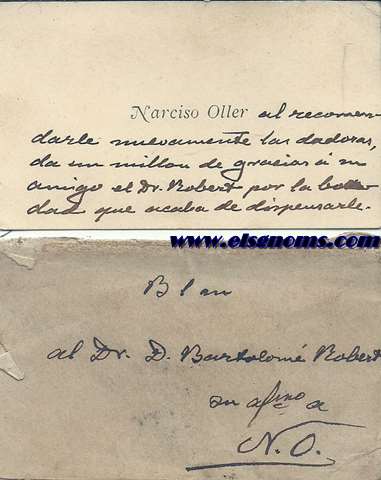 Narciso Oller al recomen-
darle nuevamente las dadoras,
da un millon de gracias á su
amigo el Dr. Robert por la bon
dad que acaba de dispensarle.
www.elsgnoms.com
B l m
al Dr. D. Bartolomé Robert
su afmo a
N. O.